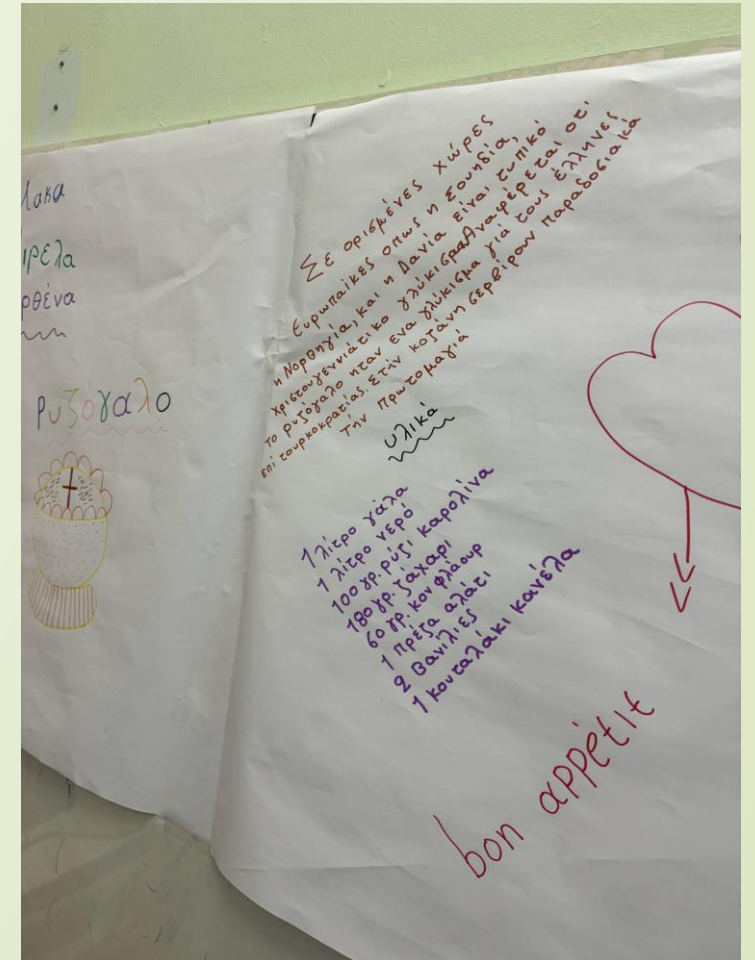 ρθένα
Ρυζόγαλο
Σε ορισμένες χώρες
Ευρωπαϊκες οπως η Σουηδία,
η Νορθηγία, και η Δανία είναι τυπικό
χριστουγεννιάτικο γλύκισμα. Αναφέρεται οτι
το ρυζόγαλο ηταν ενα γλύκισμα γιά τους έλληνες
επί τουρκοκρατίας. Στήν κοζάνη σερβίρουν παραδοσιακά
τήν πρωτομαγιά
υλικά
1 λίτρο γάλα
1 λίτρο νερό
100 γρ. ρύζι καρολίνα
180 γρ. ζάχαρι
60 γρ. κον φλάουρ
1 πρέζα αλάτι
2 βανίλιες
1 κουταλάκι κανέλα
bon appétit